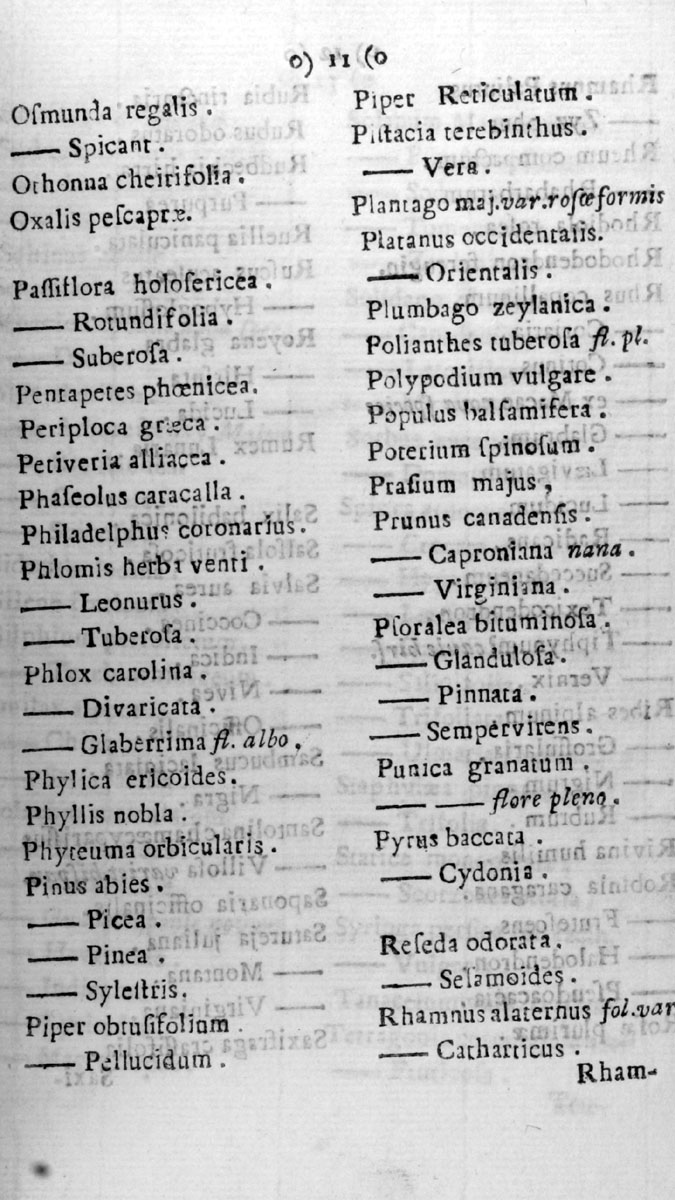 o) 11 (o
Oſmunda regalis.
—— Spicant.
Othonna cheirifolia.
Oxalis peſcapræ.
Paſſiflora holoſericea.
—— Rotundifolia.
—— Suberoſa.
Pentapetes phœnicea.
Periploca græca.
Petiveria alliacea.
Phaſeolus caracalla.
Philadelphus coronarius.
Phlomis herba venti.
—— Leonurus.
—— Tuberoſa.
Phlox carolina.
—— Divaricata.
—— Glaberrima fl. albo,
Phylica ericoides.
Phyllis nobla.
Phyteuma orbicularis.
Pinus abies.
—— Picea.
—— Pinea.
—— Syleſtris.
Piper obtuſifolium.
—— Pellucidum.
Piper Reticulatum.
Piſtacia terebinthus.
—— Vera.
Plantago maj. var. roſœformis
Platanus occidentalis.
—— Orientalis.
Plumbago zeylanica.
Polianthes tuberoſa fl. pl.
Polypodium vulgare.
Populus balſamifera.
Poterium ſpinoſum.
Praſium majus,
Prunus canadenſis.
—— Caproniana nana.
—— Virginiana.
Pſoralea bituminoſa.
—— Glanduloſa.
—— Pinnata.
—— Sempervirens.
Punica granatum.
—— —— flore pleno.
Pyrus baccata.
—— Cydonia.
Reſeda odorata.
—— Seſamoides.
Rhamnus alaternus fol. var
—— Catharticus.
Rham-